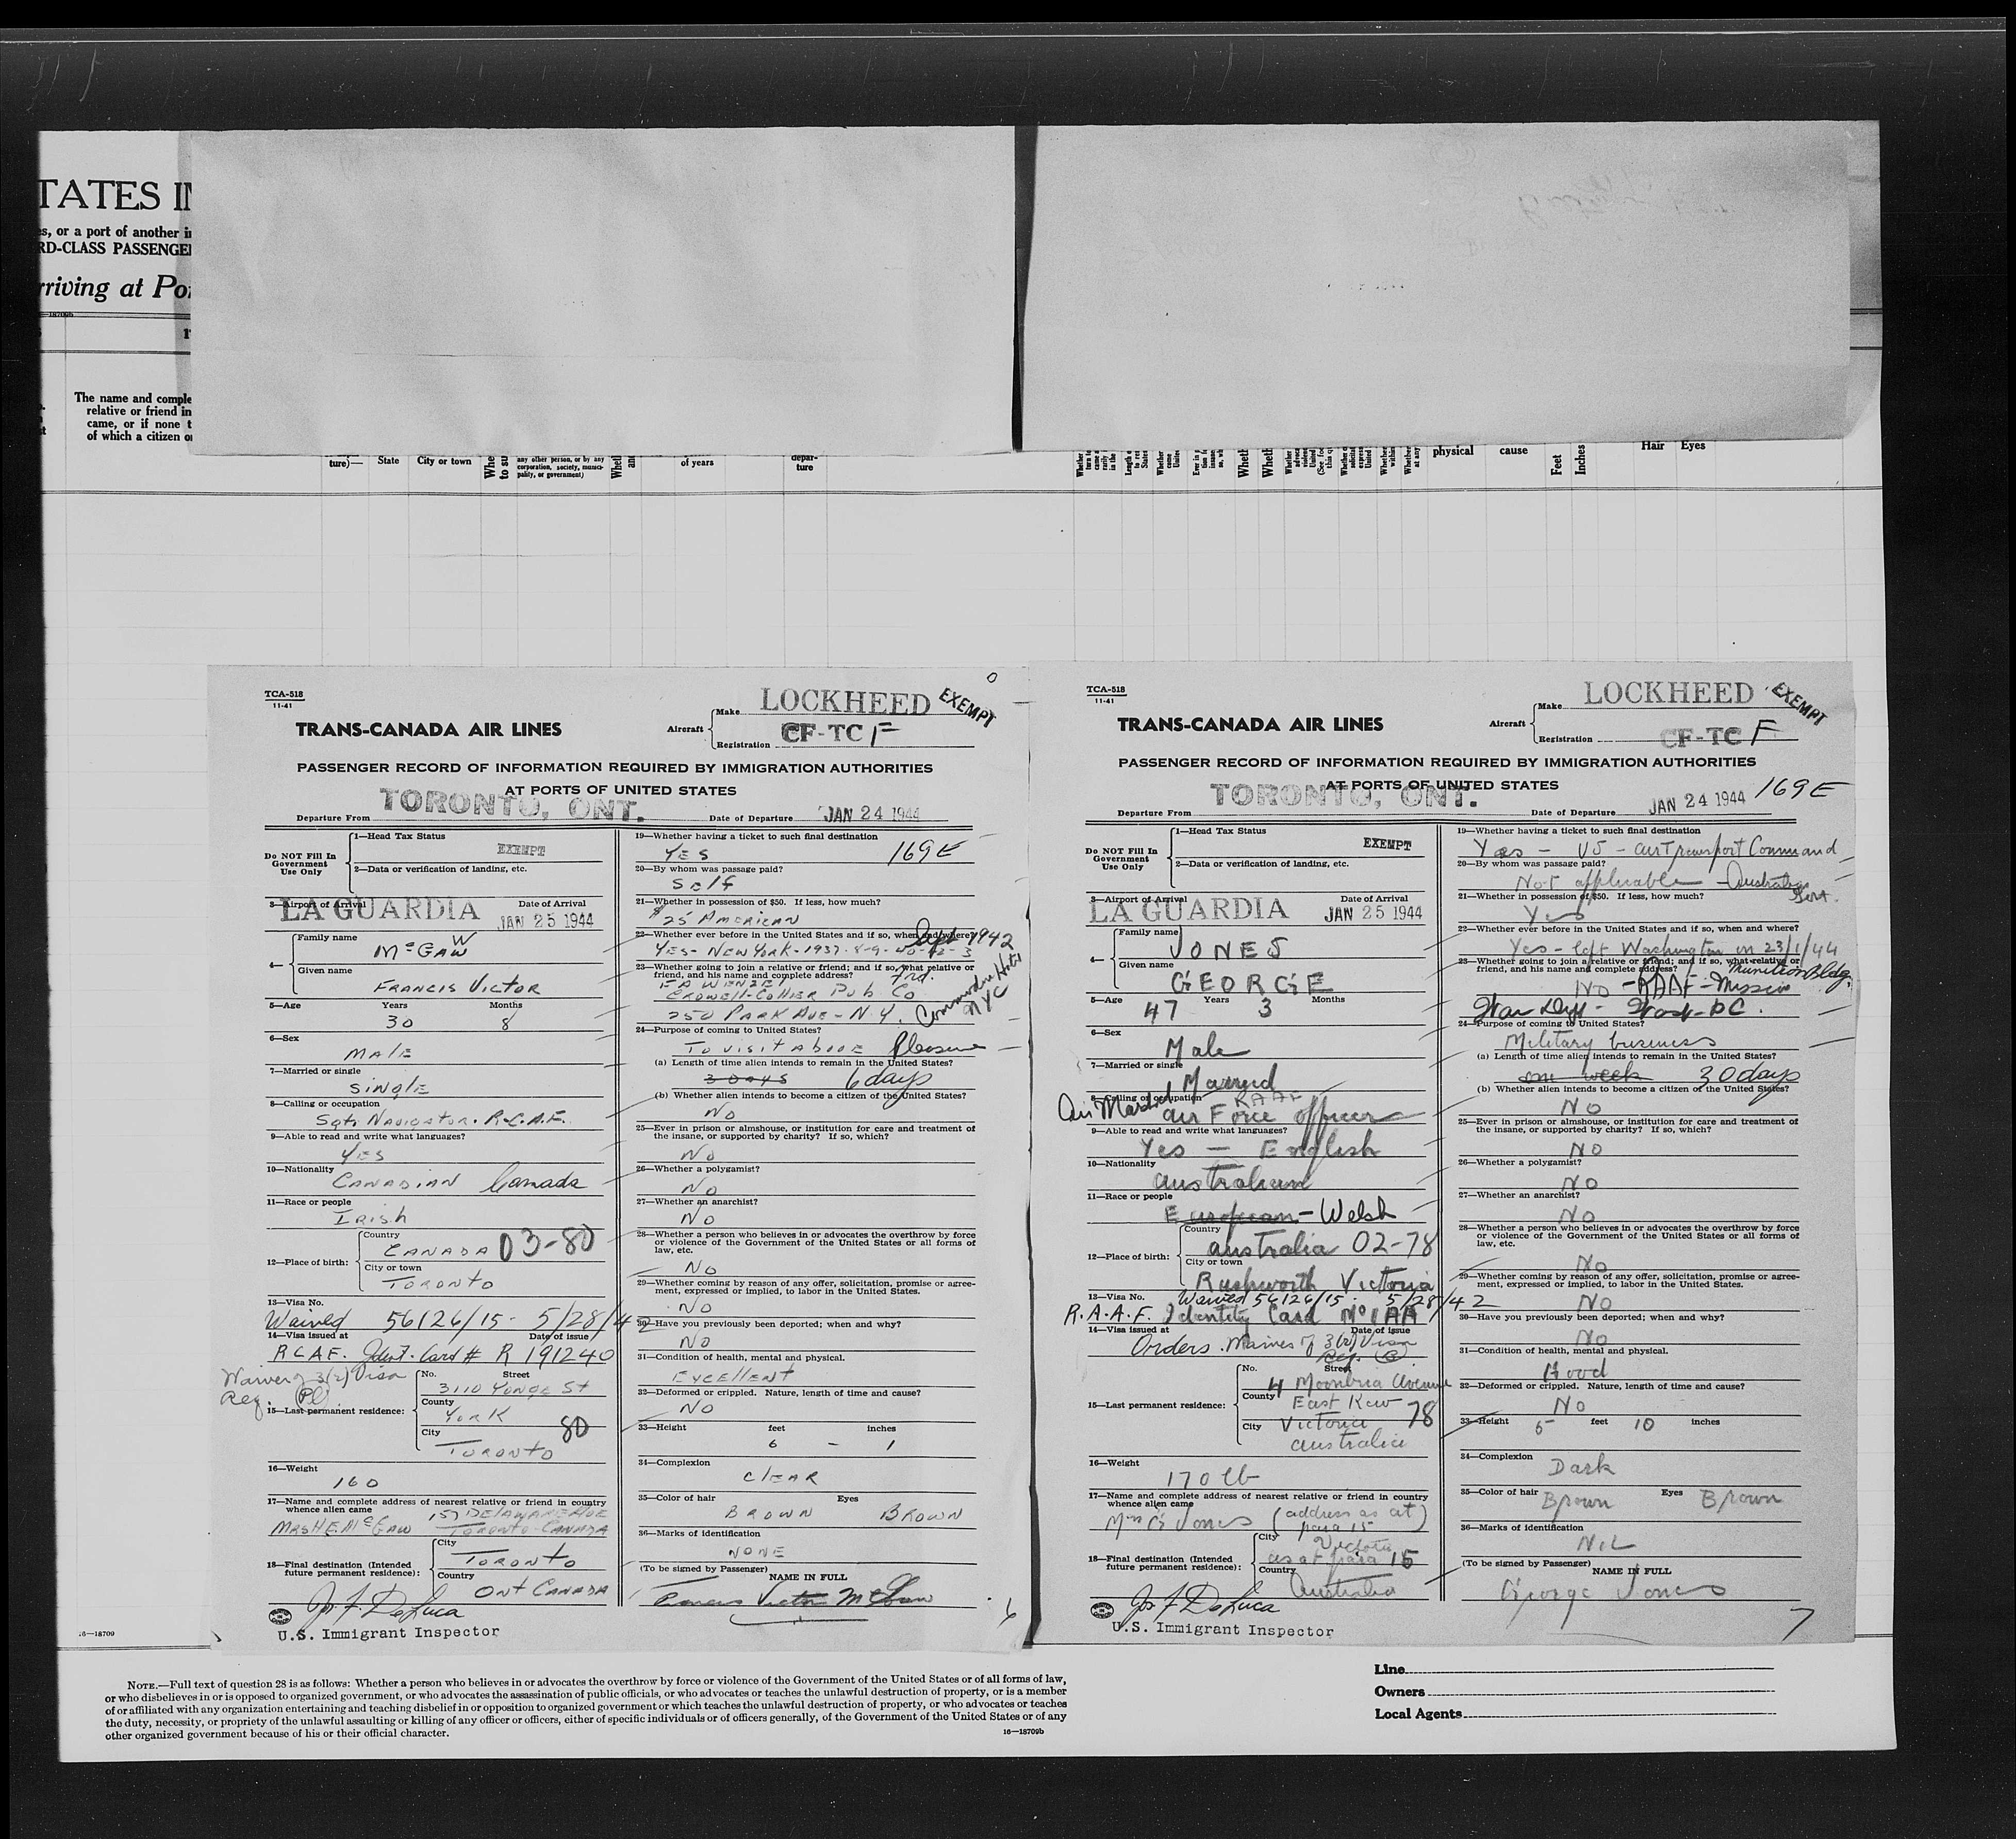 TATES IN
es, or a port of another in
RD-CLASS PASSENGE
rriving at Por
The name and comple
relative or friend in
came, or if none t
of which a citizen o
ture)—
State
City or town
any other person, or by any
corporation, society, munici-
pality, or government)
of years
depar-
ture
physical
cause
Feet
Inches
Hair
Eyes
TCA-518
11-41
TRANS-CANADA AIR LINES
Aircraft
Make LOCKHEED
Registration CF-TC F
EXEMPT
PASSENGER RECORD OF INFORMATION REQUIRED BY IMMIGRATION AUTHORITIES
AT PORTS OF UNITED STATES
Departure From TORONTO, ONT. Date of Departure JAN 24 1944
Do NOT Fill In
Government
Use Only
1—Head Tax Status
EXEMPT
2—Data or verification of landing, etc.
3—Airport of Arrival Date of Arrival
LA GUARDIA JAN 25 1944
4—
Family name
McGAW
Given name
FRANCIS VICTOR
5—Age Years Months
30 8
6—Sex
MALE
7—Married or single
SINGLE
8—Calling or occupation
Sgt. NAVIGATOR. R.C.A.F.
9—Able to read and write what languages?
YES
10—Nationality
CANADIAN Canada
11—Race or people
IRISH
12—Place of birth:
Country
CANADA 03-80
City or town
TORONTO
13—Visa No.
Waived 56126/15 - 5/28/42
14—Visa issued at Date of issue
RCAF. Ident. Card # R 191240
Waiver of 3(2) Visa
Reg. (Pl)
15—Last permanent residence:
No. Street
3110 YONGE ST
County
YORK
80
City
TORONTO
16—Weight
160
17—Name and complete address of nearest relative or friend in country
whence alien came
157 DELAWARE AVE
MRS H E McGAW TORONTO-CANADA
18—Final destination (Intended
future permanent residence):
City
TORONTO
Country
ONT CANADA
Jos. F. DeLuca
U.S. Immigrant Inspector
19—Whether having a ticket to such final destination
YES 169E
20—By whom was passage paid?
SELF
21—Whether in possession of $50. If less, how much?
$25 AMERICAN
22—Whether ever before in the United States and if so, when and where?
Sept 1942
YES- NEW YORK-1937-8-9-40-42-3
23—Whether going to join a relative or friend; and if so, what relative or
friend, and his name and complete address?
Frd.
F A WENZEL
CROWELL-COLLIER PUB CO
250 PARK AVE - N.Y.
Commodore Hotel
NYC
24—Purpose of coming to United States?
TO VISIT ABOVE Pleasure
(a) Length of time alien intends to remain in the United States?
3 DAYS 6 days
(b) Whether alien intends to become a citizen of the United States?
NO
25—Ever in prison or almshouse, or institution for care and treatment of
the insane, or supported by charity? If so, which?
NO
26—Whether a polygamist?
NO
27—Whether an anarchist?
NO
28—Whether a person who believes in or advocates the overthrow by force
or violence of the Government of the United States or all forms of
law, etc.
NO
29—Whether coming by reason of any offer, solicitation, promise or agree-
ment, expressed or implied, to labor in the United States.
NO
30—Have you previously been deported; when and why?
NO
31—Condition of health, mental and physical.
EXCELLENT
32—Deformed or crippled. Nature, length of time and cause?
NO
33—Height feet inches
6 - 1
34—Complexion
CLEAR
35—Color of hair Eyes
BROWN BROWN
36—Marks of identification
NONE
(To be signed by Passenger)
NAME IN FULL
Francis Victor McGaw
6
TCA-518
11-41
TRANS-CANADA AIR LINES
Aircraft
Make LOCKHEED
Registration CF-TC F
EXEMPT
PASSENGER RECORD OF INFORMATION REQUIRED BY IMMIGRATION AUTHORITIES
AT PORTS OF UNITED STATES
169E
Departure From TORONTO, ONT. Date of Departure JAN 24 1944
Do NOT Fill In
Government
Use Only
1—Head Tax Status
EXEMPT
2—Data or verification of landing, etc.
3—Airport of Arrival Date of Arrival
LA GUARDIA JAN 25 1944
4—
Family name
JONES
Given name
GEORGE
5—Age Years Months
47 3
6—Sex
Male
7—Married or single
Married
8—Calling or occupation RAAF
Air Marshal Air Force officer
9—Able to read and write what languages?
Yes — English
10—Nationality
Australian
11—Race or people
European - Welsh
12—Place of birth:
Country
Australia 02-78
City or town
Rushworth Victoria
13—Visa No. Waived 56126/15 5/28/42
R.A.A.F. Identity Card No 1 AA
14—Visa issued at Date of issue
Orders. Waiver of 3(2) Visa
Reg.
15—Last permanent residence:
No. Street
4 Moonbria Avenue
County
East Kew
78
City Victoria
Australia
16—Weight
170 lb
17—Name and complete address of nearest relative or friend in country
whence alien came
Mrs G Jones (address as at)
para 15
18—Final destination (Intended
future permanent residence):
City Victoria
as at para 15
Country
Australia
Jos. F. DeLuca
U.S. Immigrant Inspector
19—Whether having a ticket to such final destination
Yes - US - Air Transport Command
20—By whom was passage paid?
Not applicable - Australia
Govt.
21—Whether in possession of $50. If less, how much?
Yes
22—Whether ever before in the United States and if so, when and where?
Yes - left Washington on 23/1/44
23—Whether going to join a relative or friend; and if so, what relative or
friend, and his name and complete address?
Munition Bldg.
NO - RAAF - Mission
War Dept - Wash-DC.
24—Purpose of coming to United States?
Military business
(a) Length of time alien intends to remain in the United States?
one week 30 days
(b) Whether alien intends to become a citizen of the United States?
NO
25—Ever in prison or almshouse, or institution for care and treatment of
the insane, or supported by charity? If so, which?
NO
26—Whether a polygamist?
NO
27—Whether an anarchist?
NO
28—Whether a person who believes in or advocates the overthrow by force
or violence of the Government of the United States or all forms of
law, etc.
No
29—Whether coming by reason of any offer, solicitation, promise or agree-
ment, expressed or implied, to labor in the United States.
NO
30—Have you previously been deported; when and why?
No
31—Condition of health, mental and physical.
Good
32—Deformed or crippled. Nature, length of time and cause?
No
33—Height feet inches
5 10
34—Complexion
Dark
35—Color of hair Eyes
Brown Brown
36—Marks of identification
NIL
(To be signed by Passenger)
NAME IN FULL
George Jones
7
16—18709
NOTE.—Full text of question 28 is as follows: Whether a person who believes in or advocates the overthrow by force or violence of the Government of the United States or of all forms of law,
or who disbelieves in or is opposed to organized government, or who advocates the assassination of public officials, or who advocates or teaches the unlawful destruction of property, or is a member
of or affiliated with any organization entertaining and teaching disbelief in or opposition to organized government or which teaches the unlawful destruction of property, or who advocates or teaches
the duty, necessity, or propriety of the unlawful assaulting or killing of any officer or officers, either of specific individuals or of officers generally, of the Government of the United States or of any
other organized government because of his or their official character.
16—18709b
Line
Owners
Local Agents